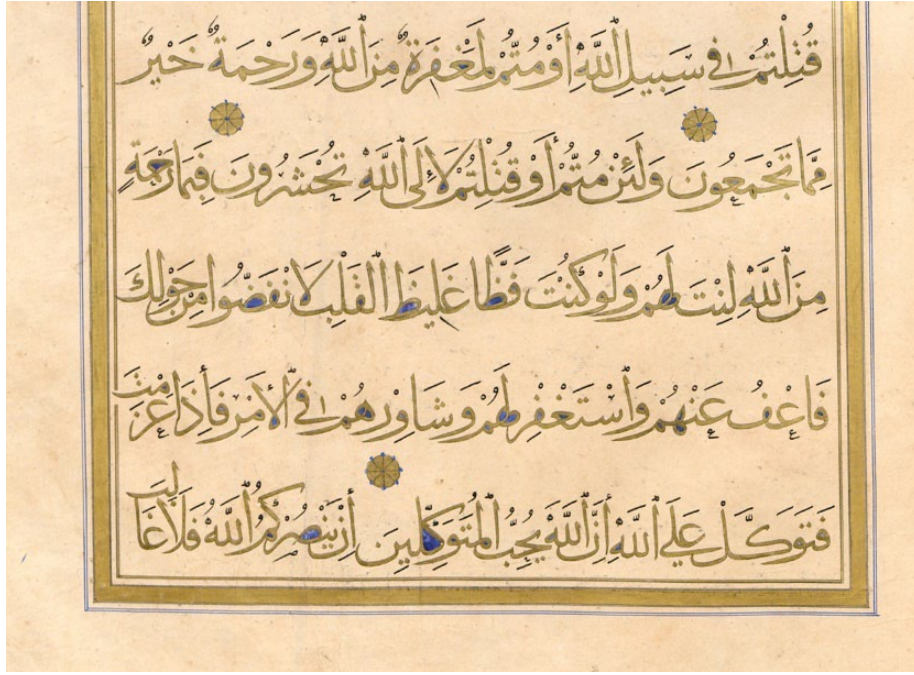 قُتِلْتُمْ فِي سَبِيلِ ٱللَّهِ أَوْ مُتُّمْ لَمَغْفِرَةٌ مِنَ ٱللَّهِ وَرَحْمَةٌ خَيْرٌ
مِمَّا تَجْمَعُونَ وَلَئِنْ مُتُّمْ أَوْ قُتِلْتُمْ لَإِلَى ٱللَّهِ تُحْشَرُونَ فَبِمَا رَحْمَةٍ
مِنَ ٱللَّهِ لِنْتَ لَهُمْ وَلَوْ كُنْتَ فَظًّا غَلِيظَ ٱلْقَلْبِ لَانْفَضُّوا مِنْ حَوْلِكَ
فَاعْفُ عَنْهُمْ وَٱسْتَغْفِرْ لَهُمْ وَشَاوِرْهُمْ فِي ٱلْأَمْرِ فَإِذَا عَزَمْتَ
فَتَوَكَّلْ عَلَى ٱللَّهِ إِنَّ ٱللَّهَ يُحِبُّ ٱلْمُتَوَكِّلِينَ إِنْ يَنْصُرْكُمُ ٱللَّهُ فَلَا غَالِبَ